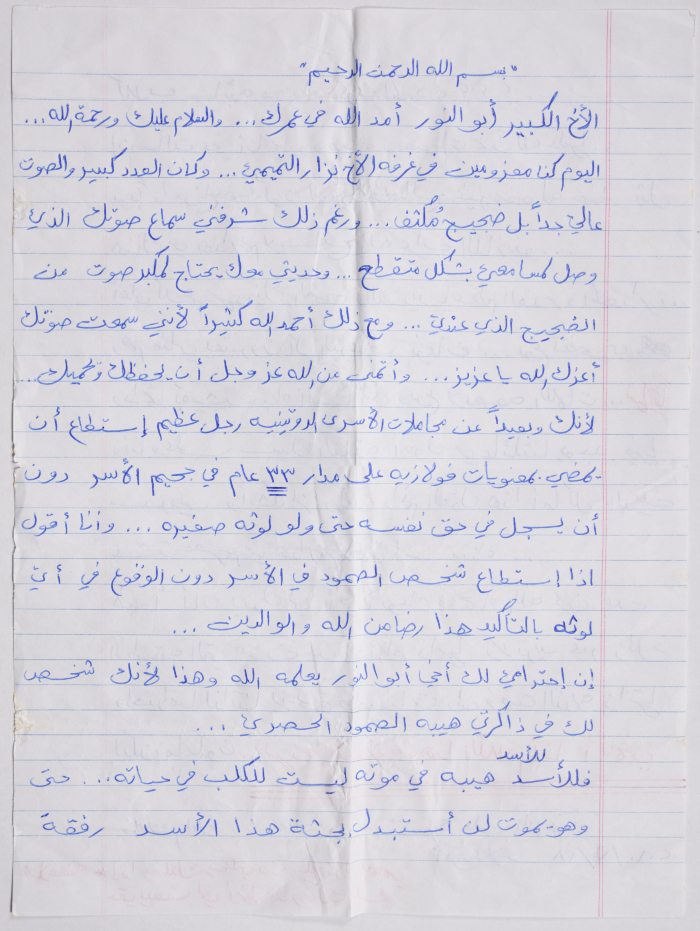 "بسم الله الرحمن الرحيم"
الأخ الكبير أبو النور أمد الله في عمرك... والسلام عليك ورحمة الله...
اليوم كنا معزومين في غرفه الأخ نزار التميمي... وكان العدد كبير والصوت
عالي جداً بل ضجيج مُكثف... ورغم ذلك شرفني سماع صوتك الذي
وصل لمسامعي بشكل متقطع... وحديثي معك يحتاج لمكبر صوت من
الضجيج الذي عندي... ومع ذلك أحمد الله كثيراً لأنني سمعت صوتك
أعزك الله يا عزيز... وأتمنى من الله عز وجل أن يحفظك ويحميك...
لأنك وبعيداً عن مجاملات الأسرى الروتينيه رجل عظيم إستطاع أن
يمضي بمعنويات فولاذيه على مدار ٣٣ عام في جحيم الأسر دون
أن يسجل في حق نفسه حتى ولو لوثه صغيره... وأنا أقول
اذا إستطاع شخص الصمود في الأسر دون الوقوع في أي
لوثه بالتأكيد هذا رضا من الله والوالدين...
إن إحترامي لك أخي أبو النور يعلمه الله وهذا لأنك شخص
لك في ذاكرتي هيبه الصمود الحصري...
للأسد
فللأسد هيبه في موته ليست للكلب في حياته... حتى
وهو يموت لن أستبدل بجثة هذا الأسد رفقة